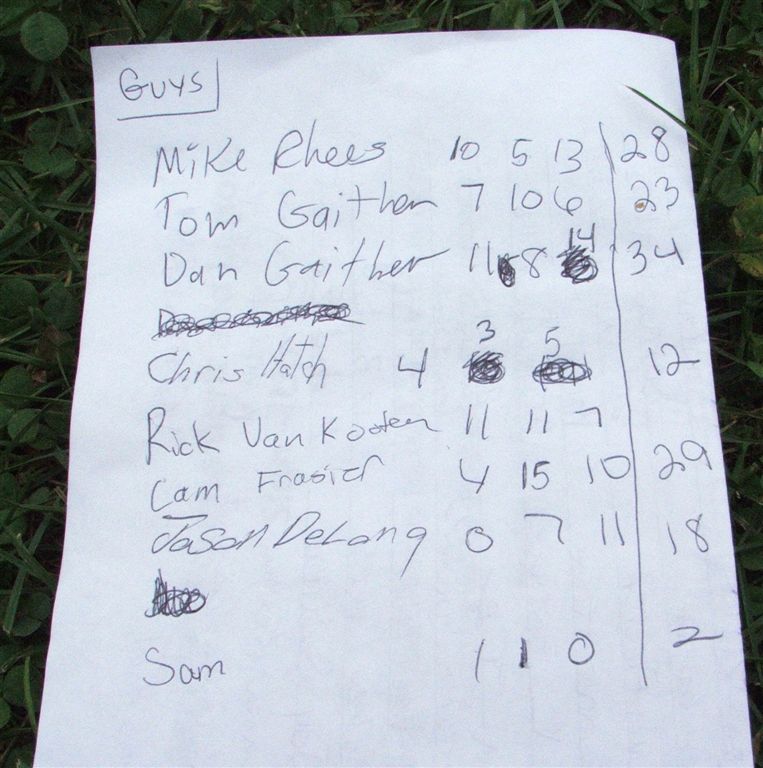 GUYS
Mike Rhees 10 5 13 28
Tom Gaither 7 10 6 23
14
Dan Gaither 11 8 34
3 5
Chris Hatch 4 12
Rick Van Kooten 11 11 7
Cam Frasier 4 15 10 29
Jason DeLang 0 7 11 18
Sam 1 1 0 2